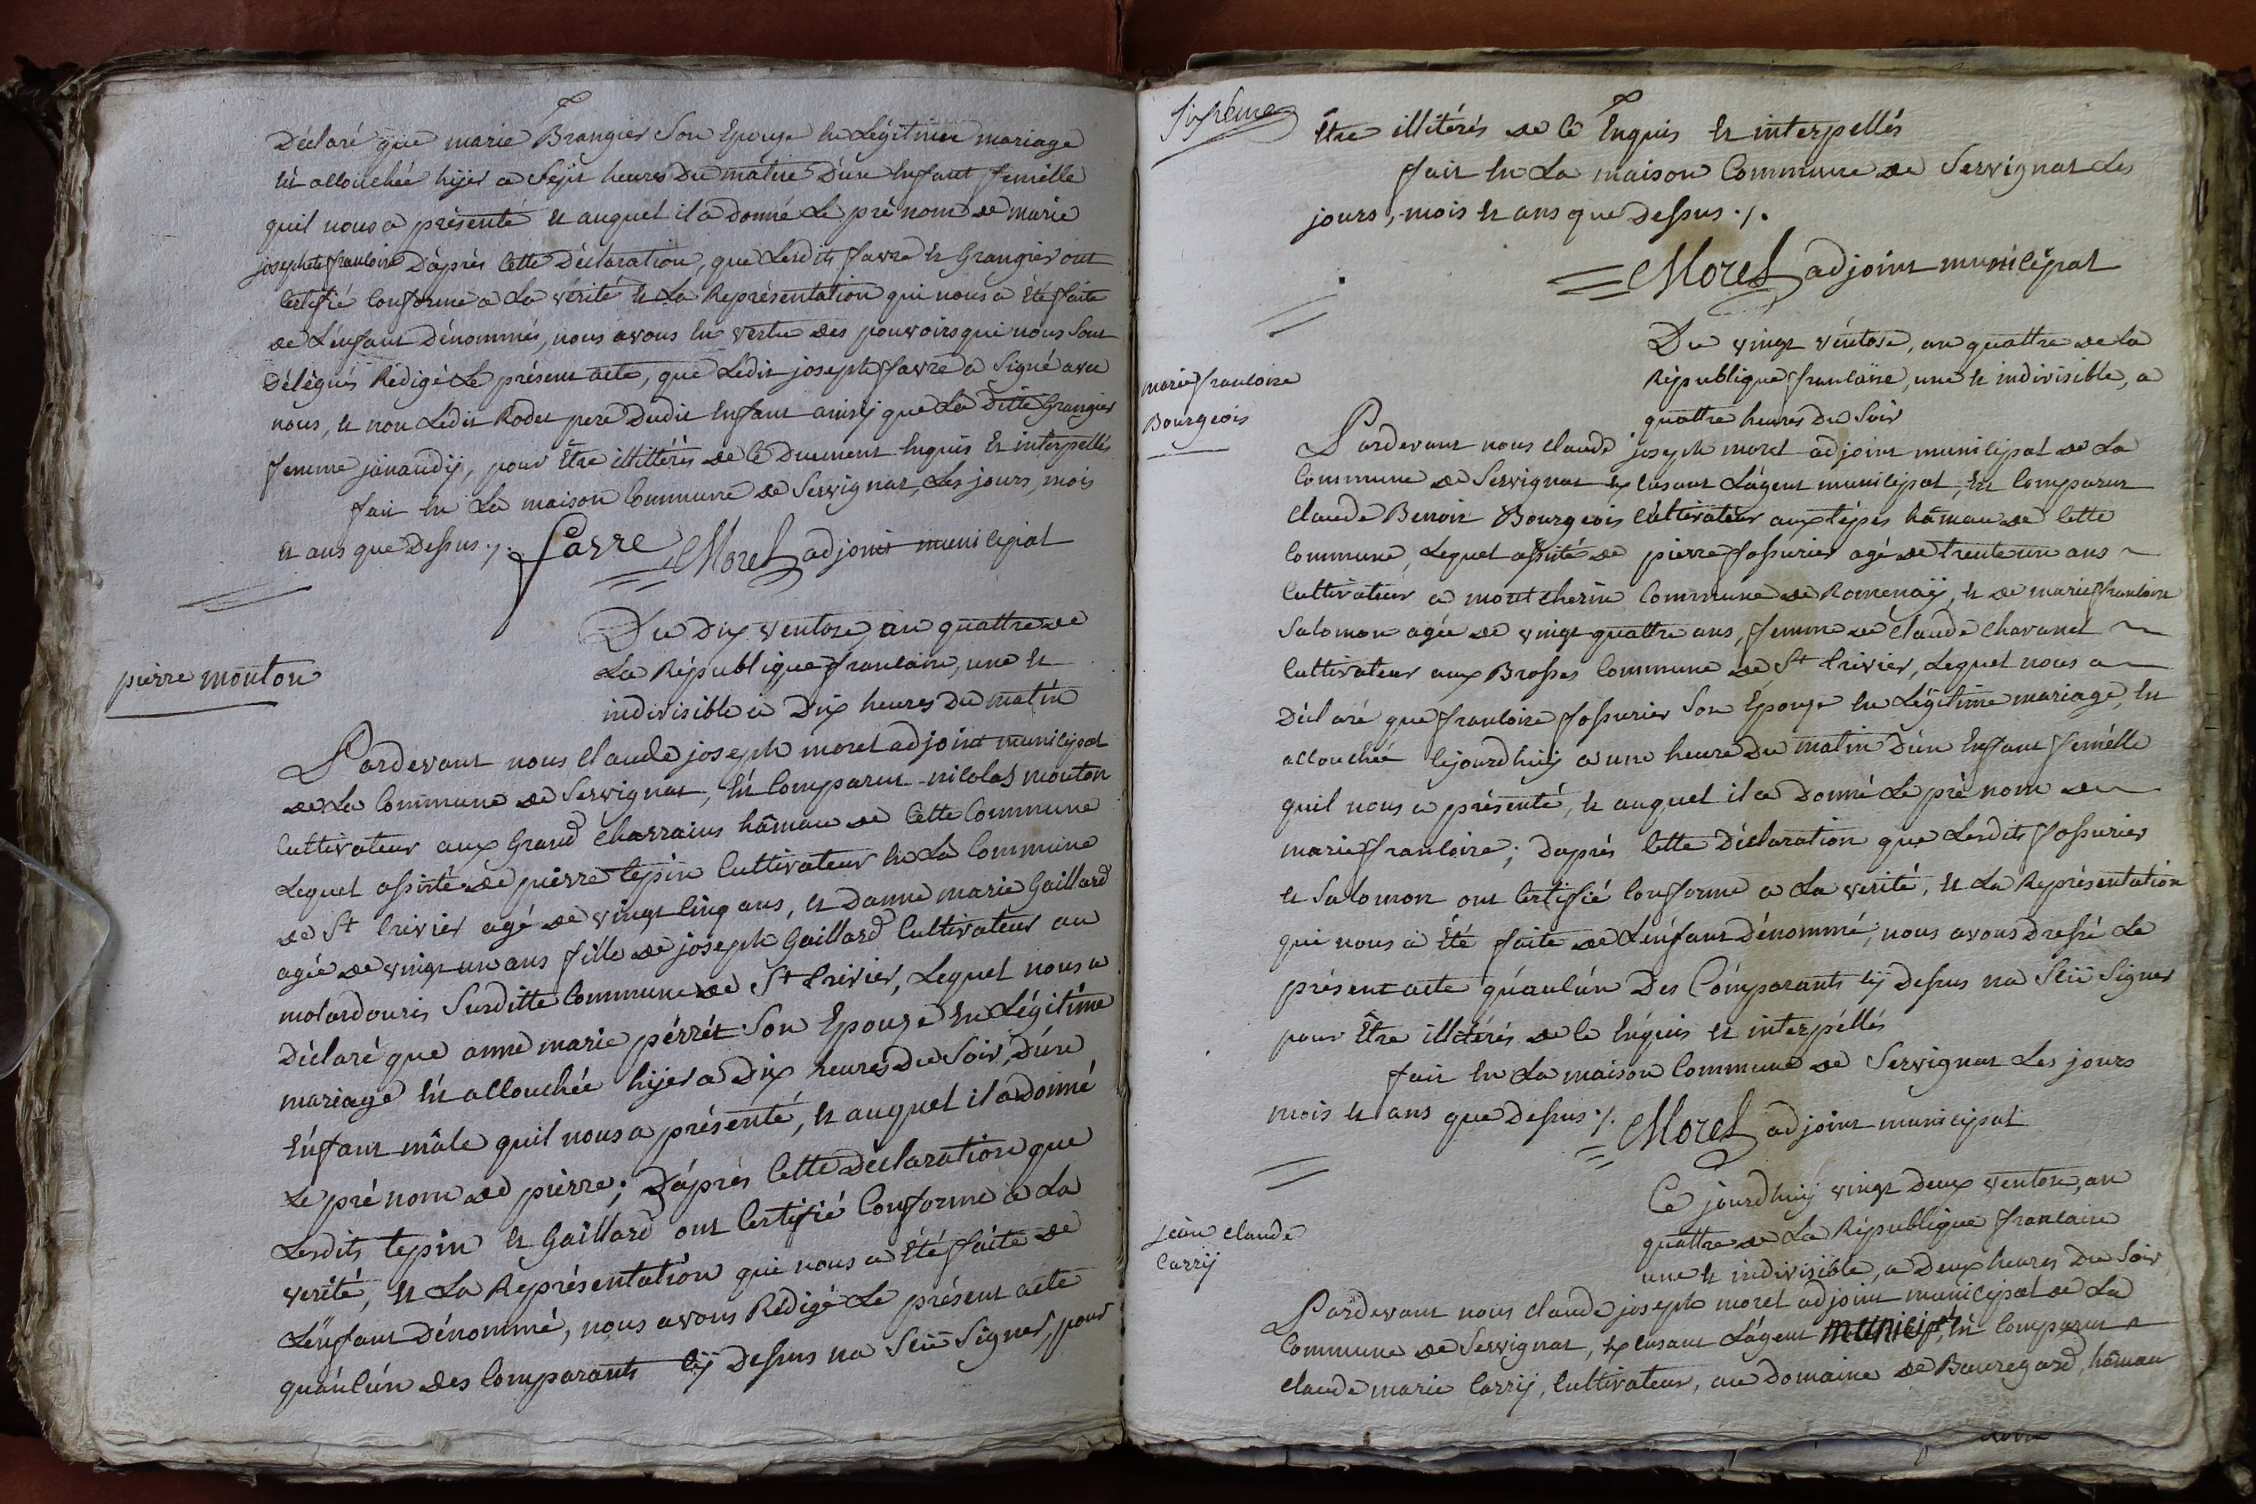 Déclaré que marie Brangier Son Epouse en Légitime mariage
Est accouchée hijer a Sept heures du matin D'un Enfant femélle
quil nous a présenté et auquel il a donné Le pré nom de marie
josephete francoise D'aprés Cette Déclaration, que Lesdits favre et Grangier ont
Certifié Conforme a La vérité et La Représentation qui nous a Été faite
de L'énfant Dénommé, nous avons En vertu des pouvoirs qui nous Sont
Délégués Rédigé Le présent acte, que Lédit joseph favre a Signé avec
nous, et non Lédit Rodet pere Dudit Enfant ainsij que La Ditte Grangier
femme janaudij, pour Être illittérés de ce Duement Enquis Et interpellés
fait En La maison Commune de Servignat, Les jours, mois
et ans que Dessus ./.
favre Morel adjoint municipal
pierre mouton
Du Dix ventose, an quattre de
La République francaise, une et
indivisible a Dix heures du matin
Pardevant nous Claude joseph morel adjoint municipal
de La Commune de Servignat, Est Comparut nicolas mouton
Cultivateur aux Grand Charrains hâmau de Cette Commune
Lequel assisté de pierre tepin Cultivateur En La Commune
de St trivier agé de vingt Cinq ans, et Danne marie Gaillard
agée de vingt un ans fille de joseph Gaillard Cultivateur au
molardouris Surditte Commune de St trivier, Lequel nous a
Déclaré que anne marie pérrét Son Epouse En Légitime
mariage Ést accouchée hijer a Dix heures Du Soir, D'un
Énfant mâle quil nous a présenté, et auquel il a donné
Le pré nom de pierre; D'áprés Cette Déclaration que
Lesdits tepin et Gaillard ont Certifié Conforme a La
verité, et La Représentation qui nous a Été faite de
L'énfant Dénommé, nous avons Rédigé Le présent acte
qu'aucún des Comparants Cij Dessus na Scü Signer, pour
Sixiéme
Être illitérés de ce Enquis et interpellés
fait En La maison Commune de Servignat Les
jours, mois et ans que Dessus ./.
Morel adjoint municipal
marie francoise
Bourgeois
Du vingt véntose, an quattre de La
République francaise, une et indivisible, a
quattre heures Du Soir
Pardevant nous Claude joseph morel adjoint municipal de La
Commune de Servignat Excusant L'ágent municipal, Est Comparut
Claude Benoit Bourgeois Cultivateur aux tépes hâmau de Cette
Commune, Lequel assisté de pierre fossurier agé de trente un ans
Cultivateur a montcherin Commune de Romenaÿ, et de marie francoise
Salomon agée de vingt quattre ans, femme de Claude Chavanel
Cultivateur aux Brosses Commune de St trivier, Lequel nous a
Déclaré que francoise fossurier Son Epouse En Légitime mariage, Est
accouchée Cejourdhuij a une heure du matin D'ún Enfant femélle
quil nous a présenté, et auquel il a Donné Le pré nom de
marie francoise; D'aprés Cette Déclaration que Lesdits fossurier
et Salomon ont Certifié Conforme a La verité, et La Représentation
qui nous a Été faite de L'énfant Dénommé, nous avons Dressé Le
présent acte qu'aucún Des Cómparants Cij Dessus na Scü Signer
pour Être illitérés de Ce Enquis et interpéllés
fait En La maison Commune de Servignat Les jours
mois et ans que Dessus ./. Morel adjoint municipal
jean Claude
Carrij
Ce jourdhuij vingt Deux ventose, an
quattre de La République francaise
une et indivisible, a Deux heures Du Soir
Pardevant nous Claude joseph morel adjoint municipal de La
Commune de Servignat, Excusant L'ágent municipal, Est Comparut
Claude marie Carrij, Cultivateur, au Domaine de Beauregard, hâmau